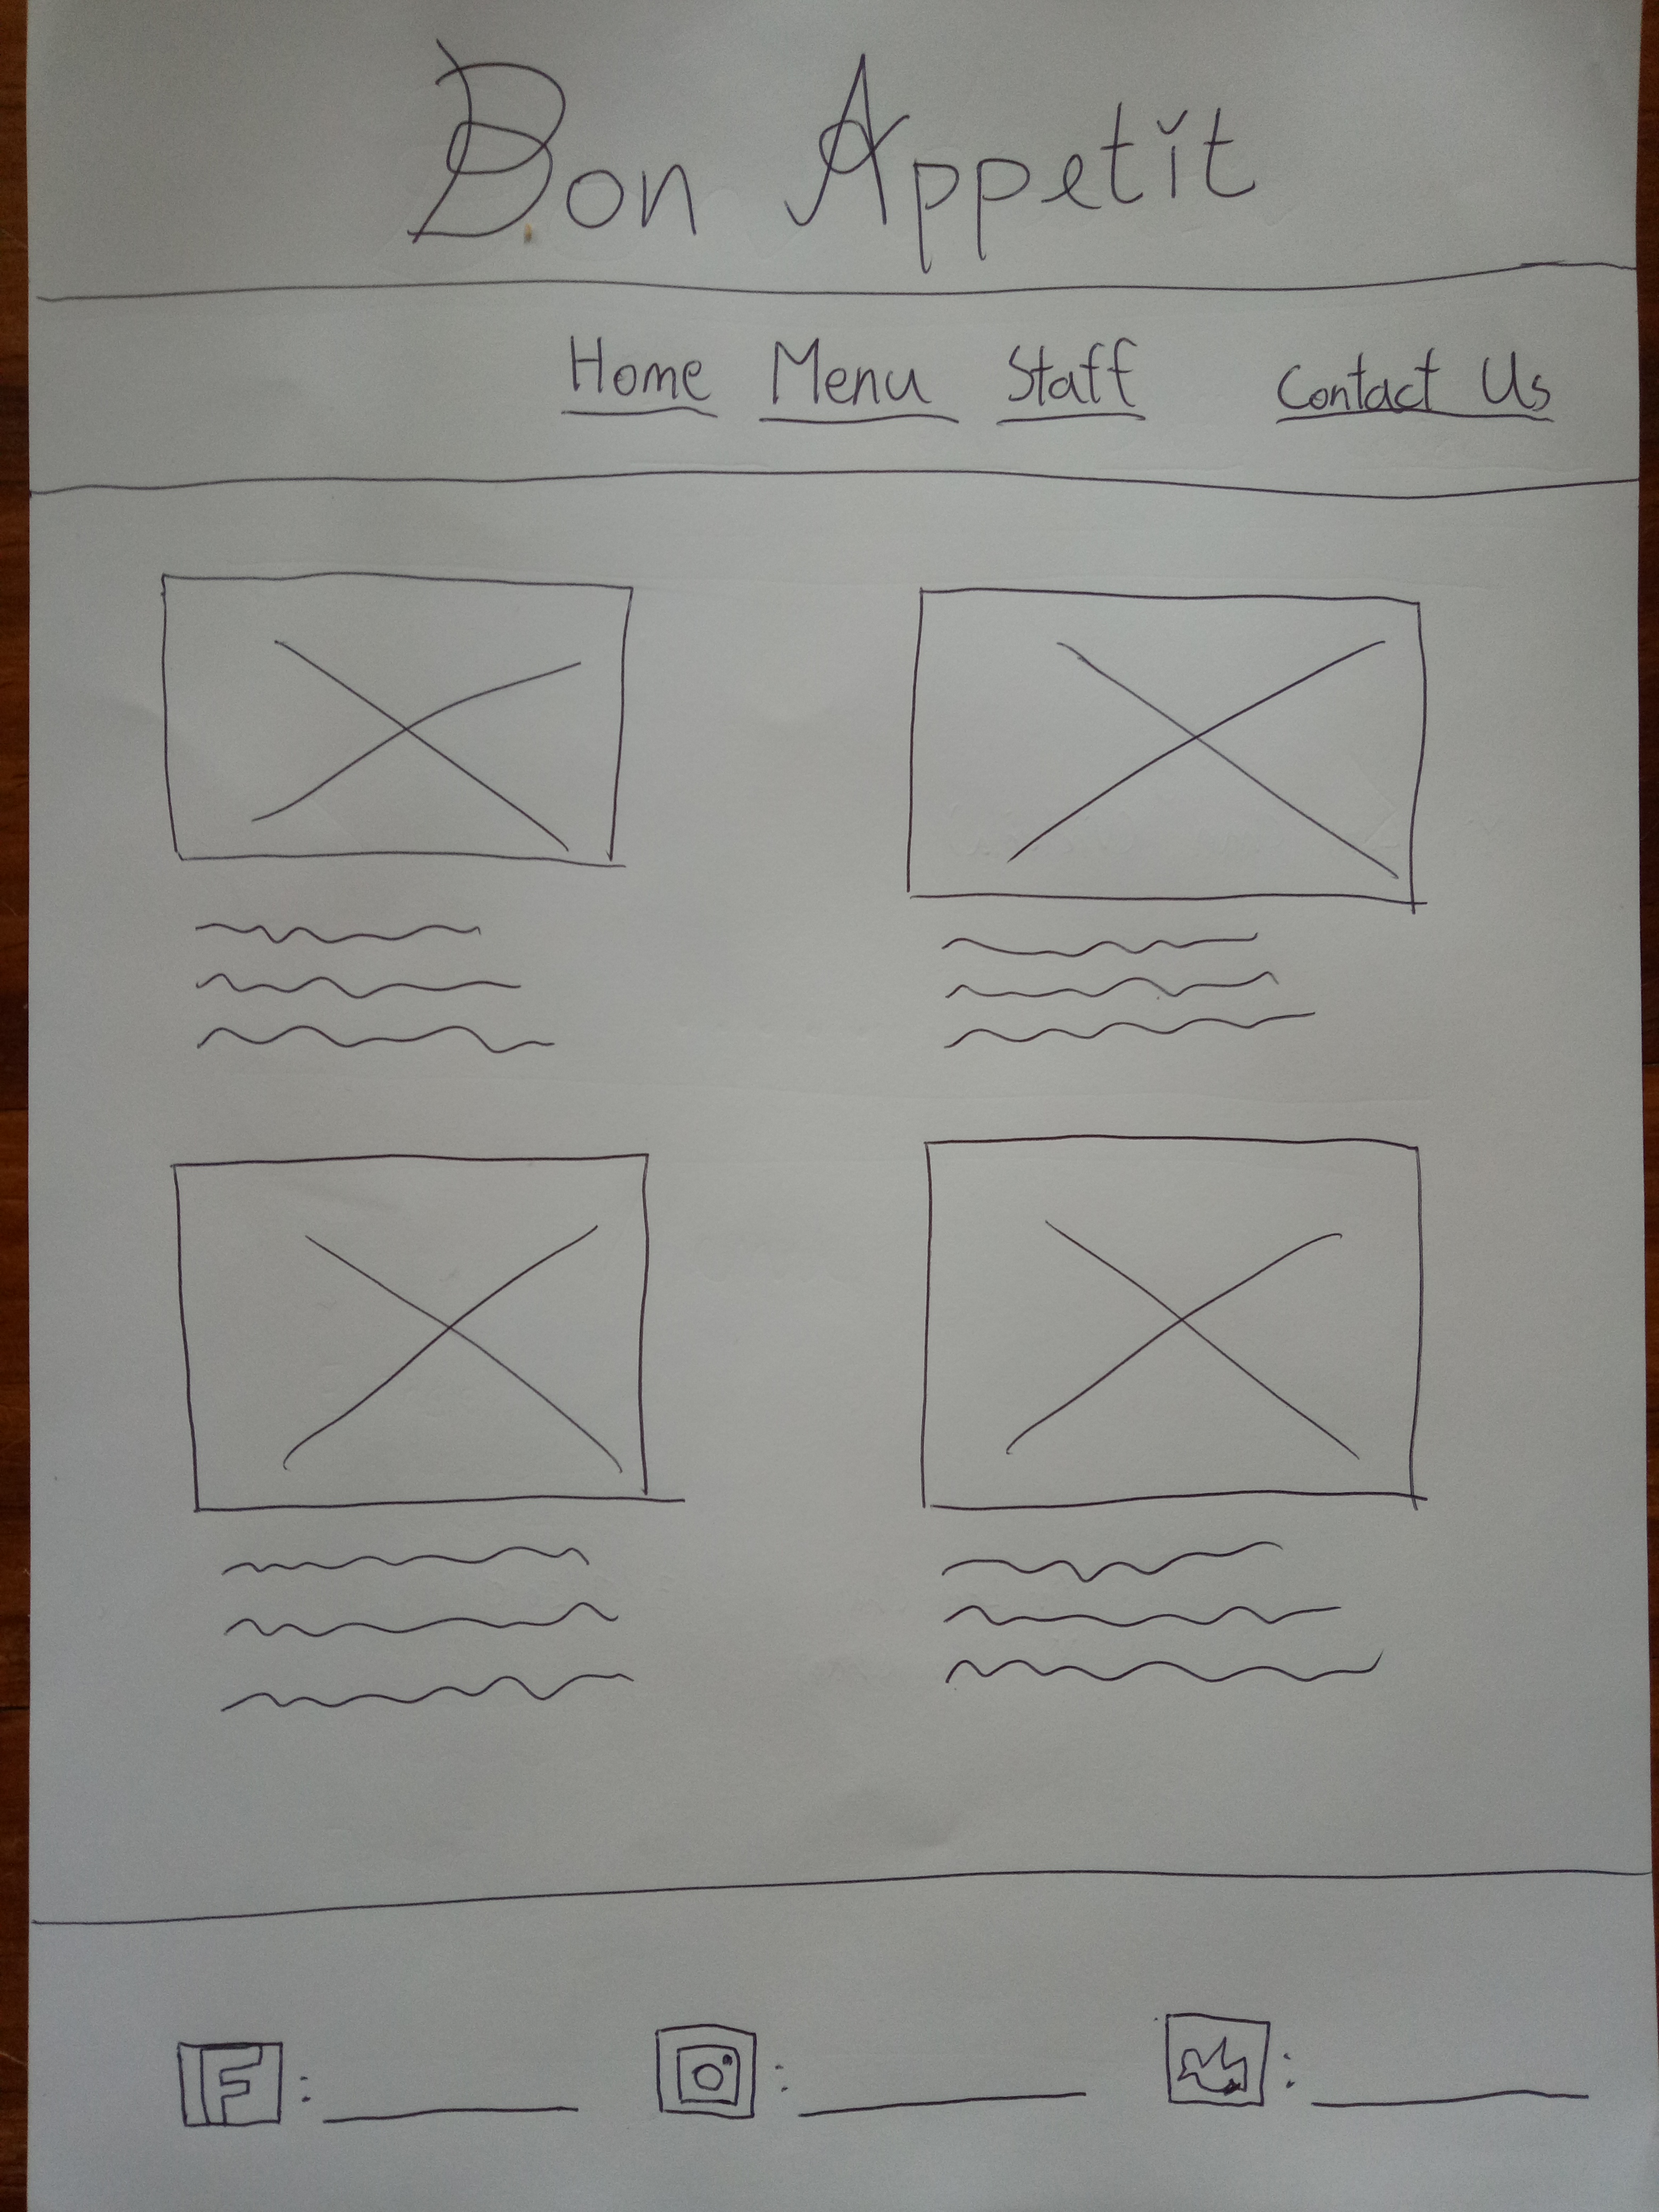 Bon Appetit
Home Menu Staff Contact Us
F : :  :